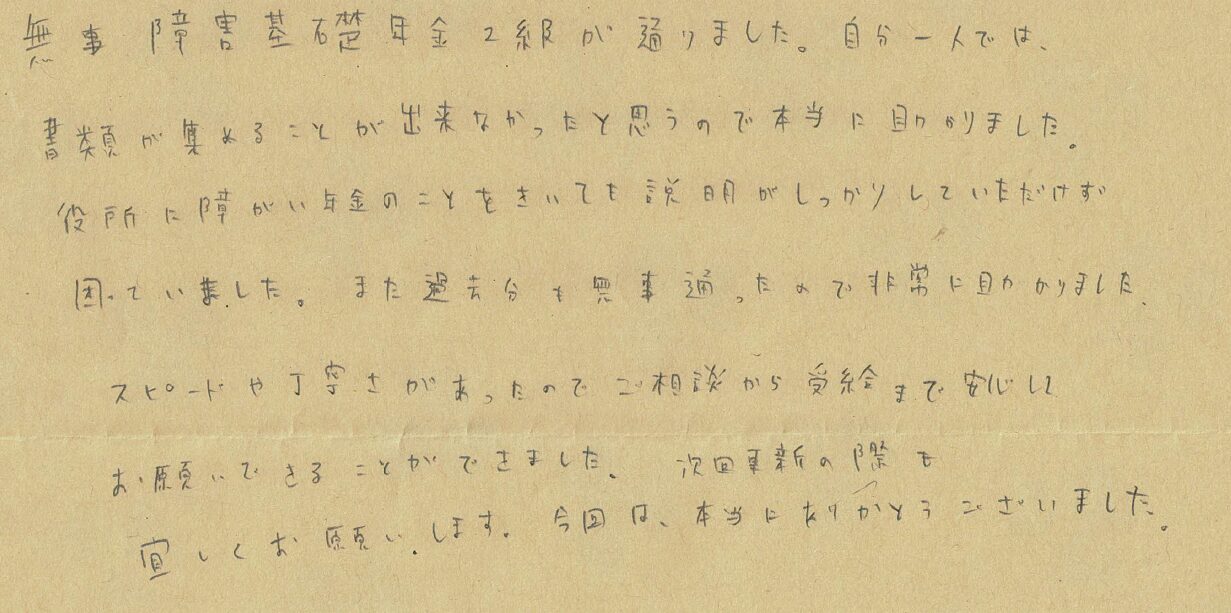 無事 障害基礎年金2級が通りました。自分一人では、
書類が集めることが出来なかったと思うので本当に助かりました。
役所に障がい年金のことをきいても説明がしっかりしていただけず
困っていました。また過去分も無事通ったので非常に助かりました。
スピードや丁寧さがあったのでご相談から受給まで安心して
お願いできることができました。次回更新の際も
宜しくお願いします。今回は、本当にありがとうございました。